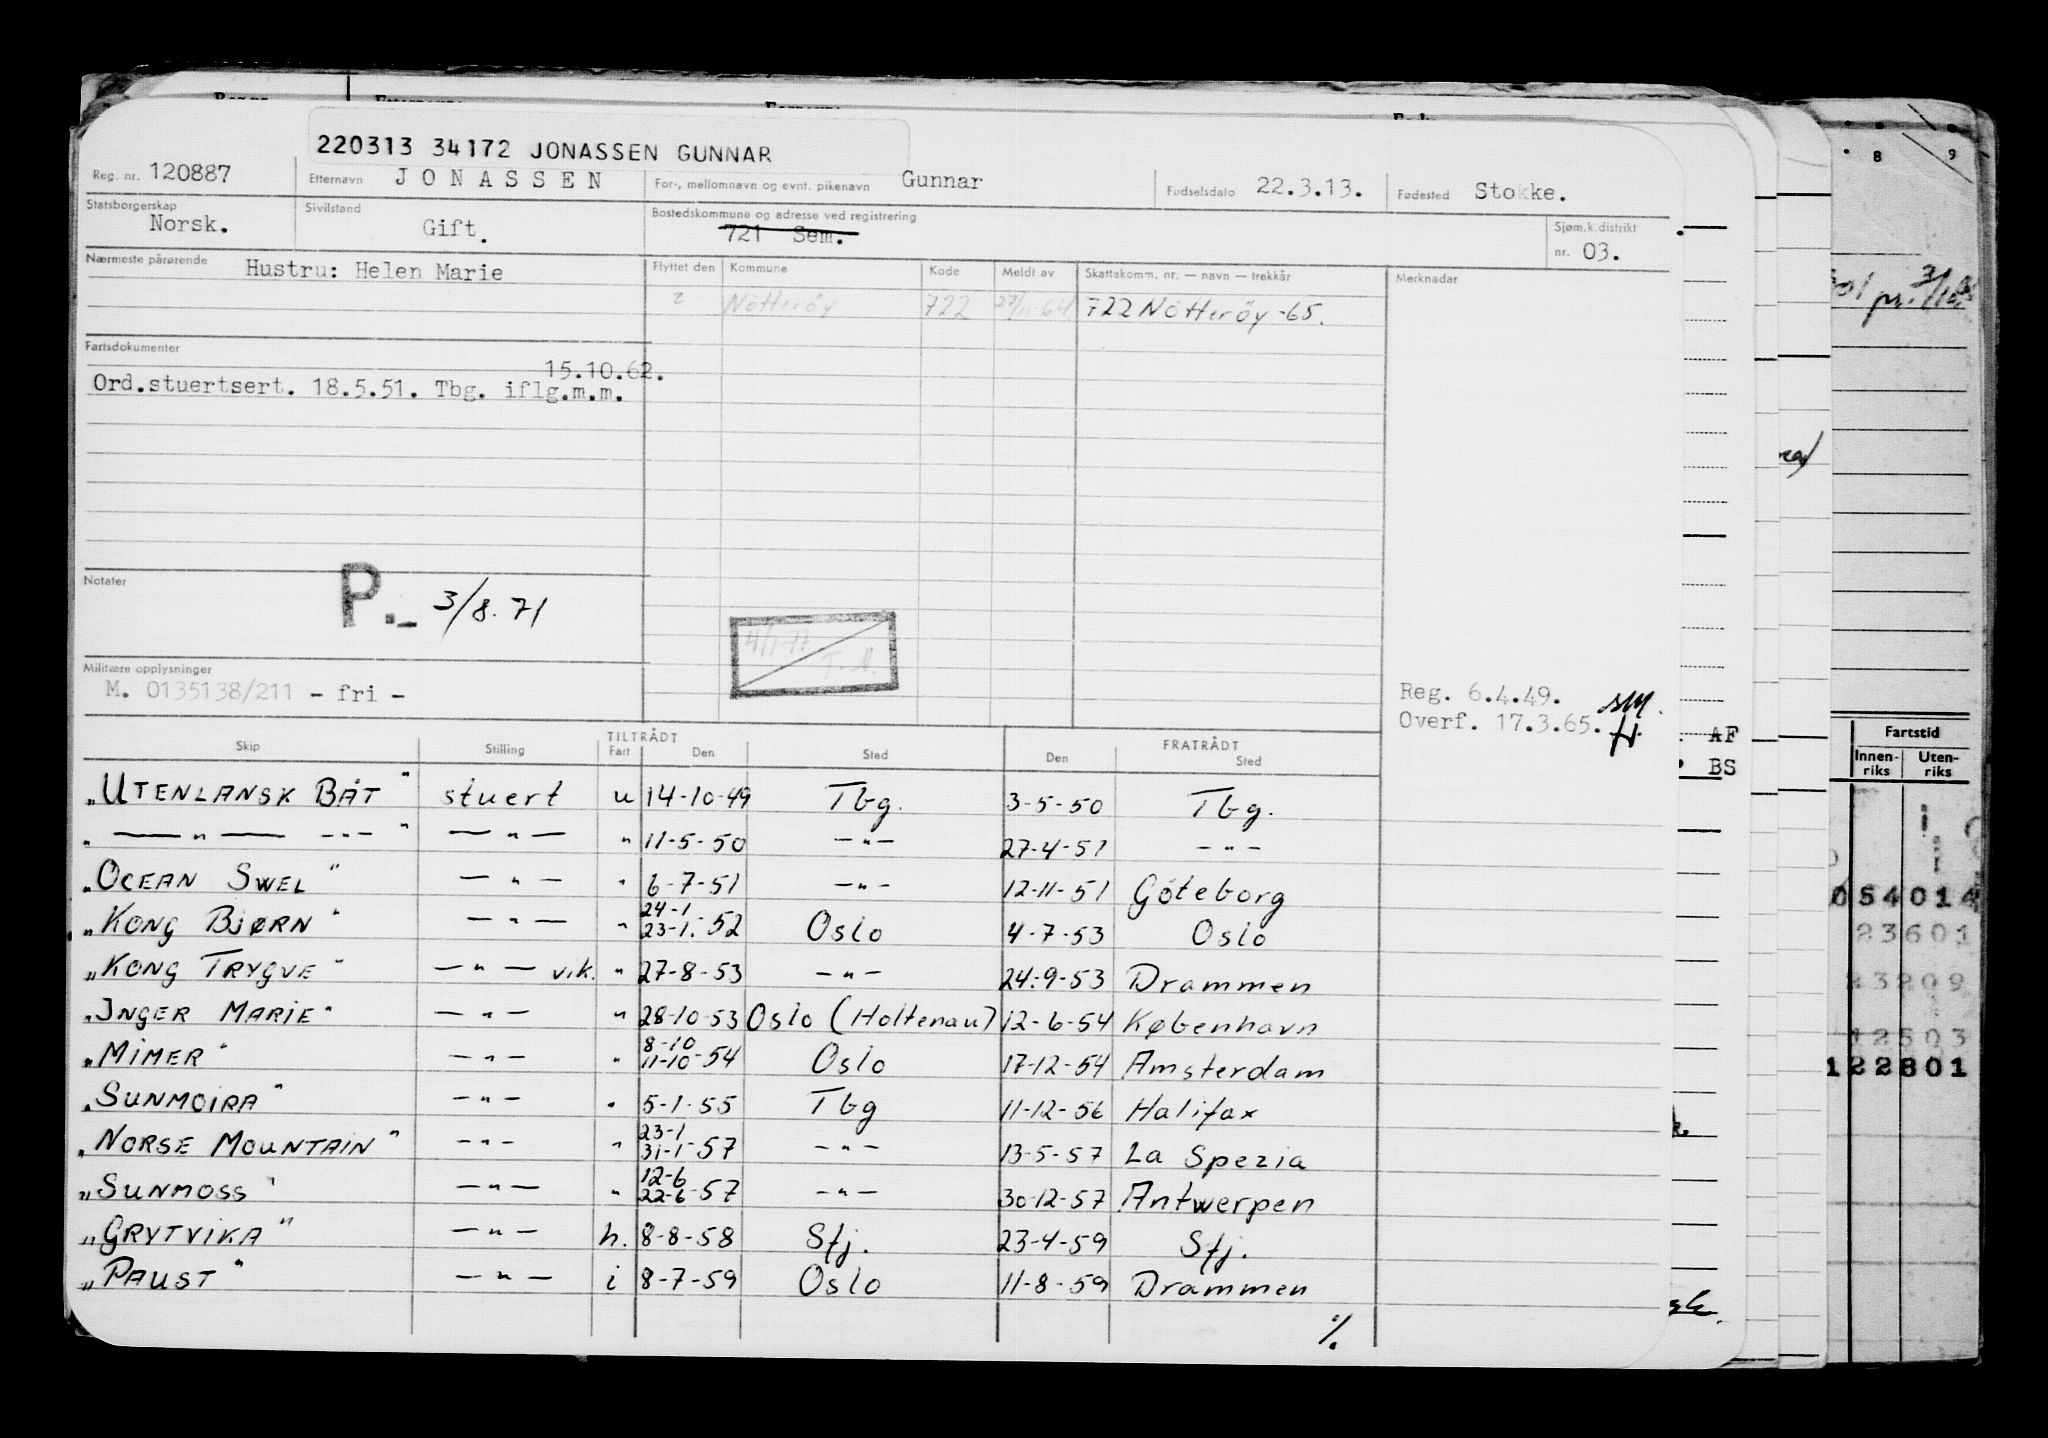 220313 34172 JONASSEN GUNNAR
Reg. nr. 120887 Etternavn JONASSEN For-, mellomnavn og evnt. pikenavn Gunnar Fødselsdato 22.3.13. Fødested Stokke.
Statsborgerskap Norsk. Sivilstand Gift. Bostedskommune og adresse ved registrering 721 Sem. Sjøm.k.distrikt nr. 03.
Nærmeste pårørende Hustru: Helen Marie Flyttet den Kommune Kode Meldt av Skattekomm. nr. — navn — trekkår Merknader
Nötteröy 722 27/11-64 722 Nötteröy -65.
Fartsdokumenter
15.10.62.
Ord.stuertsert. 18.5.51. Tbg. iflg.m.m.
Notater
P.- 3/8.71
4/1-77
T.
Militære opplysninger
M. 0135138/211 - fri -
Reg. 6.4.49. SM.
Overf. 17.3.65.
TILTRÅDT FRATRÅDT
Skip Stilling Fart Den Sted Den Sted
„UTENLANSK BÅT" stuert u 14-10-49 Tbg. 3-5-50 Tbg.
„ — " — - " - " — " — " 11-5-50 — " — 27-4-51 - " -
„OCEAN SWEL" — " — " 6-7-51 — " — 12-11-51 Göteborg
„KONG BJØRN" — " — " 24-1 23-1.-52 Oslo 4-7-53 Oslo
„KONG TRYGVE" — " — vik. " 27-8-53 — " — 24.-9-53 Drammen
„INGER MARIE" — " — " 28-10-53 Oslo (Holtenau) 12-6-54 København
„MIMER" — " — " 8-10 11-10-54 Oslo 17-12-54 Amsterdam
„SUNMOIRA" — " — " 5-1-55 Tbg 11-12-56 Halifax
„NORSE MOUNTAIN" — " — " 23-1 31-1-57 — " — 13-5-57 La Spezia
„SUNMOSS" — " — " 12-6 22-6-57 — " — 30-12-57 Antwerpen
„GRYTVIKA" — " — h. 8-8-58 Sfj. 23-4-59 Sfj.
„PAUST" — " — i 8-7-59 Oslo 11-8-59 Drammen
%
8 9
AF
BS
Fartstid
Innen-riks Uten-riks
054014
23601
23209
12503
122801